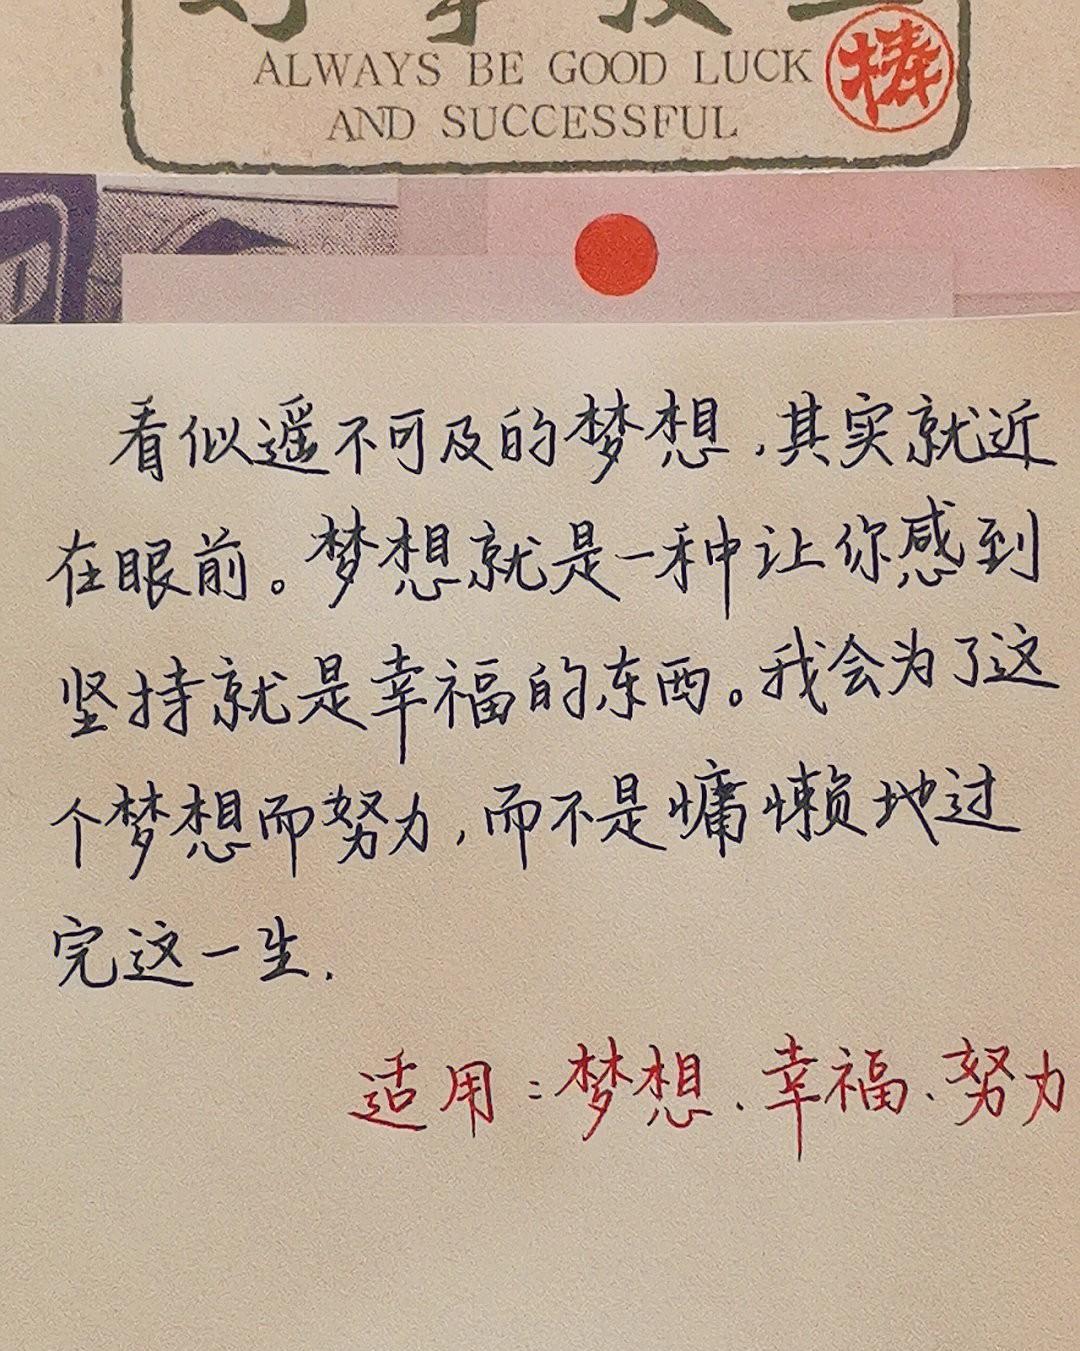 ALWAYS BE GOOD LUCK
AND SUCCESSFUL
棒
看似遥不可及的梦想，其实就近
在眼前。梦想就是一种让你感到
坚持就是幸福的东西。我会为了这
个梦想而努力，而不是慵懒地过
完这一生.
适用：梦想、幸福、努力